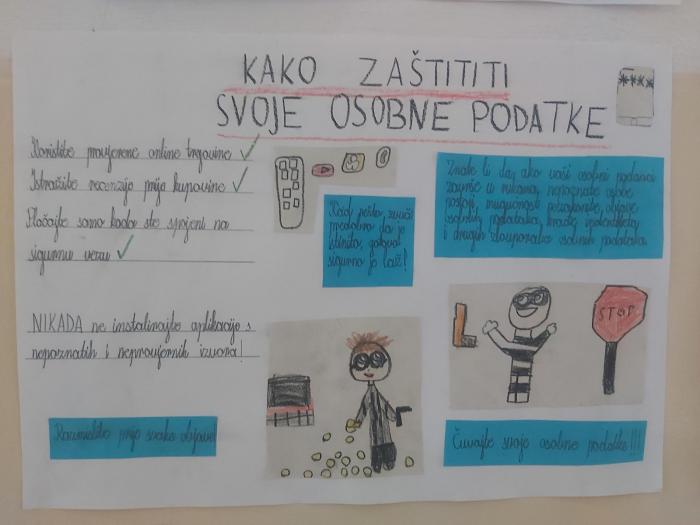 KAKO ZAŠTITITI
SVOJE OSOBNE PODATKE
****
Koristite provjerene online trgovine
Istražite recenzije prije kupovine
Plaćajte samo kada ste spojeni na
sigurnu vezu
Kad nešto zvuči
predobro da je
istinito, gotovo
sigurno je laž!
Znate li da, ako vaši osobni podaci
završe u rukama nepoznate osobe
postoji mogućnost
osobnih podataka, krađe identiteta
i drugih zlouporaba osobnih podataka.
NIKADA ne instalirajte aplikacije s
nepoznatih i neprovjernih izvora!
STOP
Razmislite prije svake objave!
Čuvajte svoje osobne podatke!!!